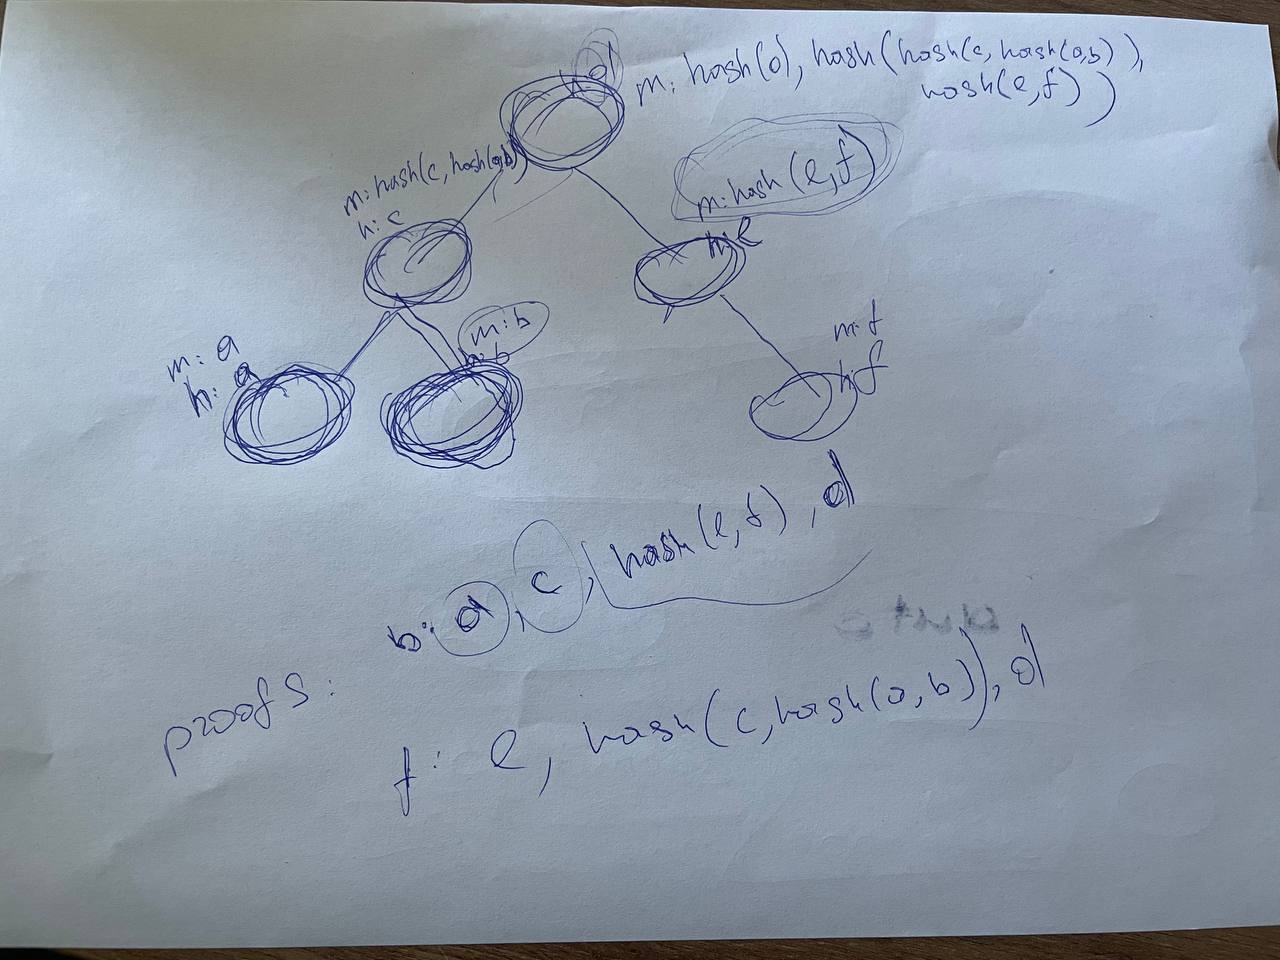 h: d
m: hash(d), hash(hash(c, hash(a,b)),
hash(e,f))
m: hash(c, hash(a,b))
h: c
m: hash(e,f)
h: e
m: a
h: a
m: b
h: b
m: f
h: f
proofs:
b: a, c, hash(e,f), d
f: e, hash(c, hash(a,b)), d